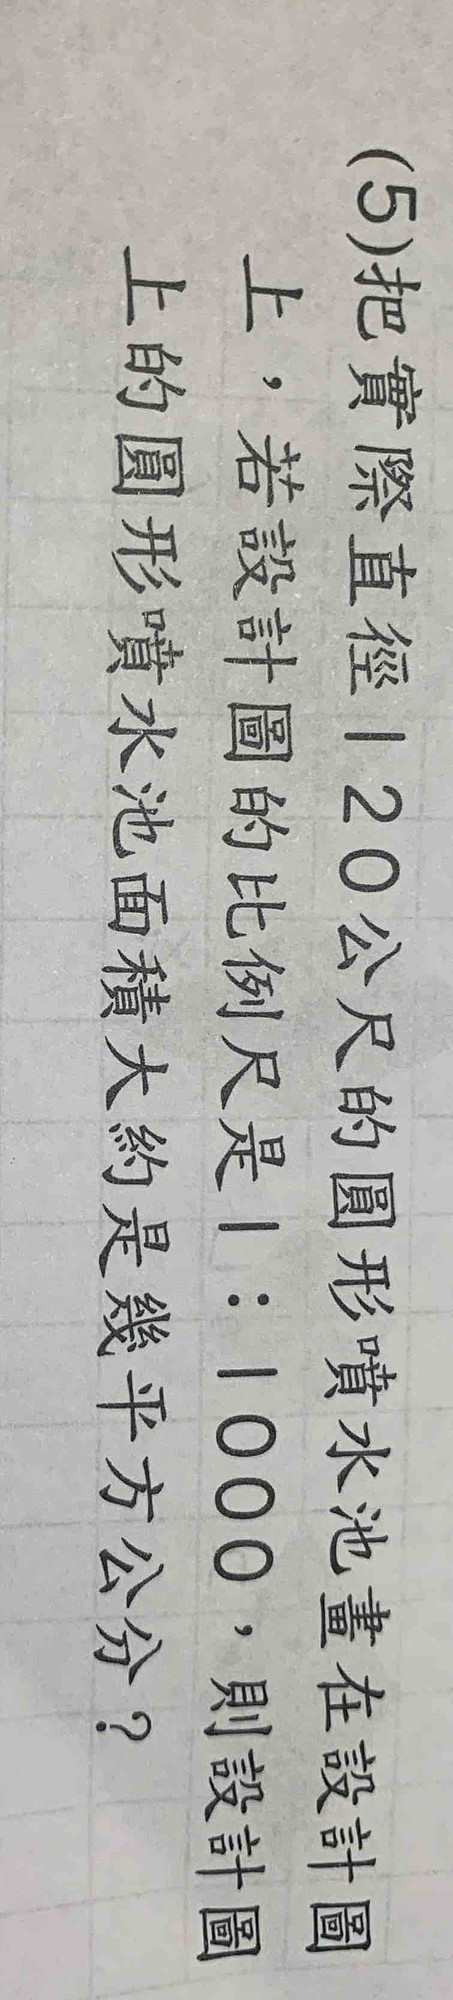 (5)把實際直徑120公尺的圓形噴水池畫在設計圖
上，若設計圖的比例尺是1：1000，則設計圖
上的圓形噴水池面積大約是幾平方公分？